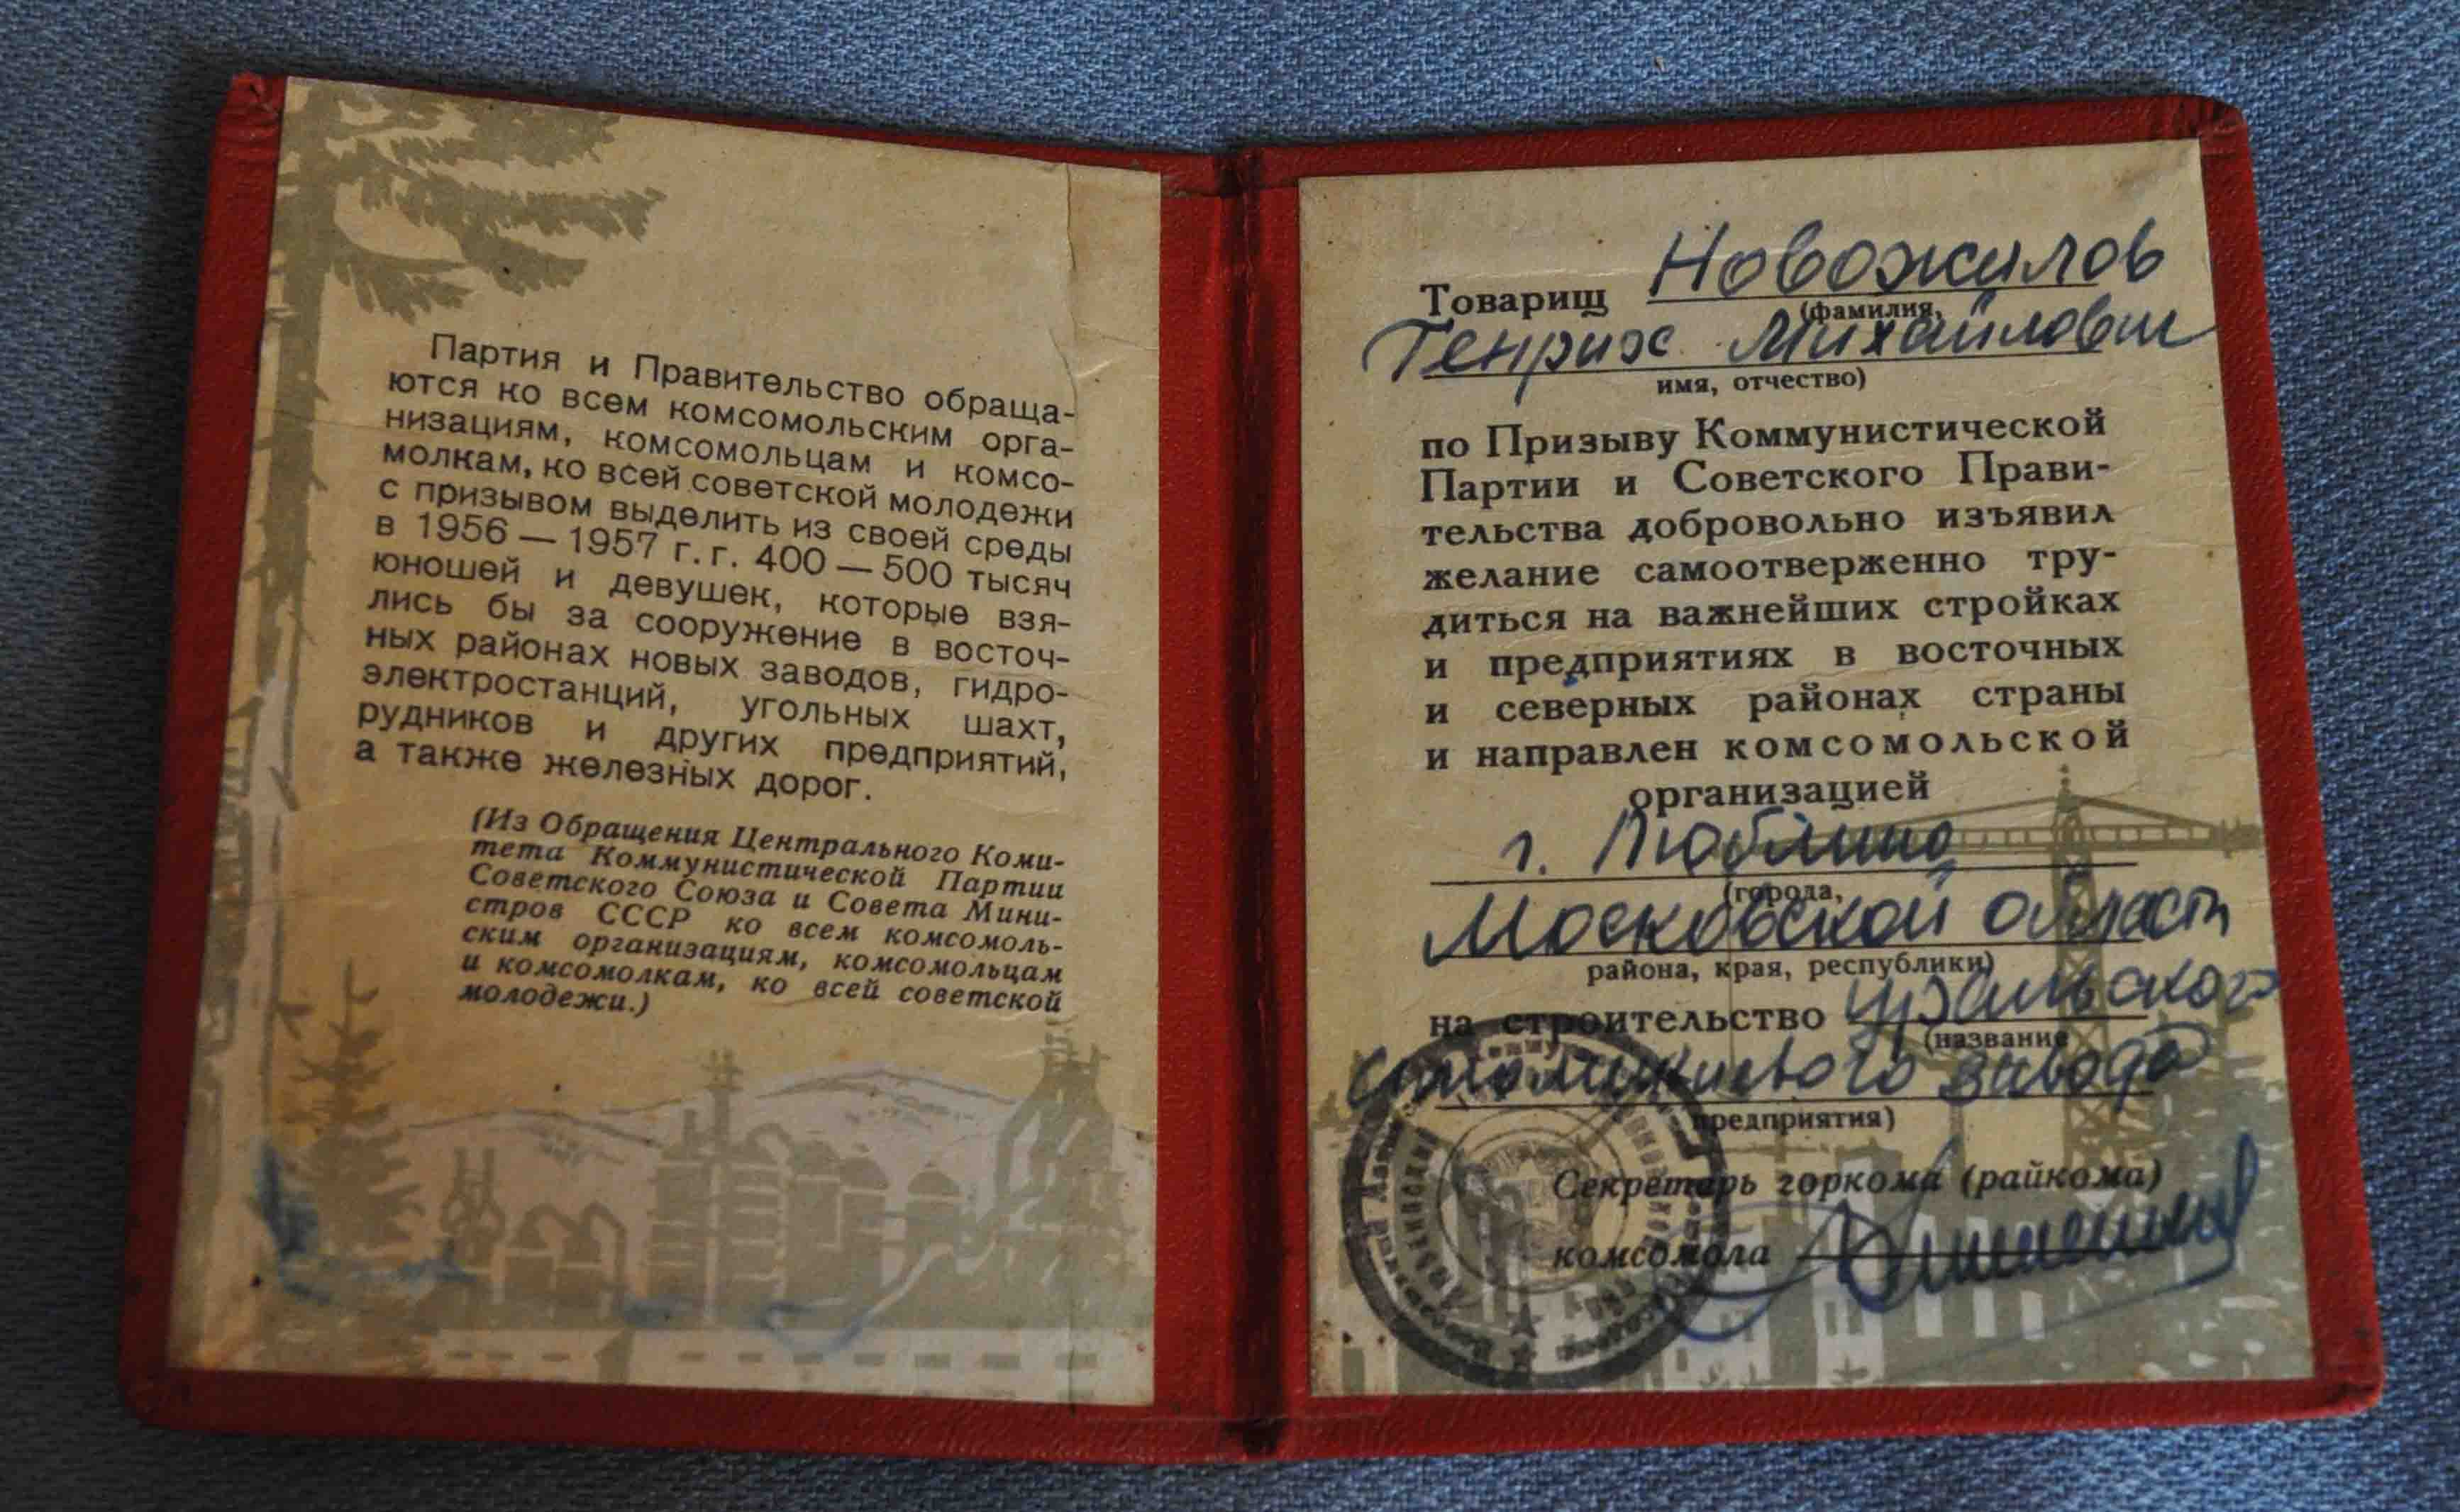 Партия и Правительство обраща-
ются ко всем комсомольским орга-
низациям, комсомольцам и комсо-
молкам, ко всей советской молодежи
с призывом выделить из своей среды
в 1956 — 1957 г. г. 400 — 500 тысяч
юношей и девушек, которые взя-
лись бы за сооружение в восточ-
ных районах новых заводов, гидро-
электростанций, угольных шахт,
рудников и других предприятий,
а также железных дорог.
(Из Обращения Центрального Коми-
тета Коммунистической Партии
Советского Союза и Совета Мини-
стров СССР ко всем комсомоль-
ским организациям, комсомольцам
и комсомолкам, ко всей советской
молодежи.)
Товарищ Новожилов
(фамилия,
Генрих Михайлович
имя, отчество)
по Призыву Коммунистической
Партии и Советского Прави-
тельства добровольно изъявил
желание самоотверженно тру-
диться на важнейших стройках
и предприятиях в восточных
и северных районах страны
и направлен комсомольской
организацией
г. Люблино
(города,
Московской области
района, края, республики)
на строительство Уральского
(название
завода
предприятия)
Секретарь горкома (райкома)
комсомола